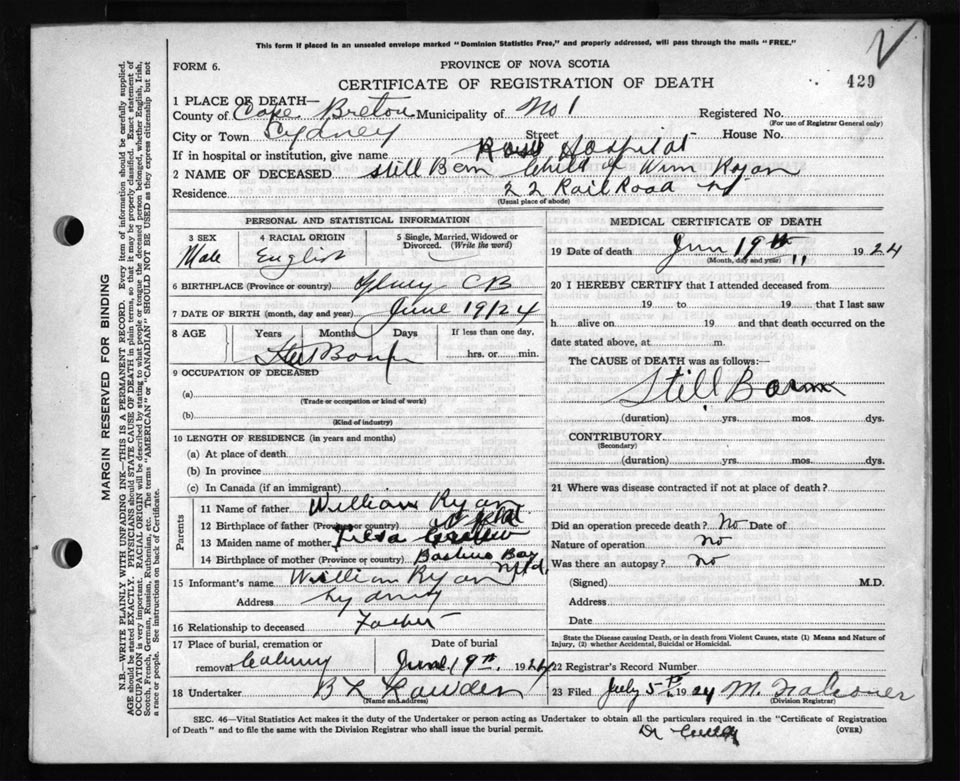 This form if placed in an unsealed envelope marked "Dominion Statistics Free," and properly addressed, will pass through the mails "FREE."
FORM 6.
PROVINCE OF NOVA SCOTIA
CERTIFICATE OF REGISTRATION OF DEATH
429
1 PLACE OF DEATH—
County of Cape Breton Municipality of No 1 Registered No.
(For use of Registrar General only)
City or Town Sydney Street House No.
If in hospital or institution, give name Ross Hospital
2 NAME OF DECEASED Still Born Child of Wm Ryan
Residence 22 Rail Road
(Usual place of abode)
PERSONAL AND STATISTICAL INFORMATION
3 SEX Male
4 RACIAL ORIGIN English
5 Single, Married, Widowed or Divorced. (Write the word)
6 BIRTHPLACE (Province or country) CB
7 DATE OF BIRTH (month, day and year) June 19/24
8 AGE Years Months Days If less than one day, hrs. or min.
9 OCCUPATION OF DECEASED
(a)
(Trade or occupation or kind of work)
(b)
(Kind of industry)
10 LENGTH OF RESIDENCE (in years and months)
(a) At place of death
(b) In province
(c) In Canada (if an immigrant)
Parents
11 Name of father William Ryan
12 Birthplace of father (Province or country)
13 Maiden name of mother
14 Birthplace of mother (Province or country) Bay Nfld.
15 Informant's name William Ryan
Address Sydney
16 Relationship to deceased Father
17 Place of burial, cremation or removal
Date of burial June 19th 1924
18 Undertaker B L
(Name and address)
MEDICAL CERTIFICATE OF DEATH
19 Date of death Jun 19th 11 1924
(Month, day and year)
20 I HEREBY CERTIFY that I attended deceased from
19 to 19 that I last saw
h alive on 19 and that death occurred on the
date stated above, at m.
The CAUSE of DEATH was as follows:—
Still Born
(duration) yrs. mos. dys.
CONTRIBUTORY
(Secondary)
(duration) yrs. mos. dys.
21 Where was disease contracted if not at place of death?
Did an operation precede death? No Date of
Nature of operation no
Was there an autopsy? no
(Signed) M.D.
Address
Date
State the Disease causing Death, or in death from Violent Causes, state (1) Means and Nature of
Injury, (2) whether Accidental, Suicidal or Homicidal.
22 Registrar's Record Number
23 Filed July 5th 1924 M. Falconer
(Division Registrar)
SEC. 46—Vital Statistics Act makes it the duty of the Undertaker or person acting as Undertaker to obtain all the particulars required in the "Certificate of Registration
of Death" and to file the same with the Division Registrar who shall issue the burial permit.
(OVER)
Dr
MARGIN RESERVED FOR BINDING
N.B.—WRITE PLAINLY WITH UNFADING INK—THIS IS A PERMANENT RECORD. Every item of information should be carefully supplied.
AGE should be stated EXACTLY. PHYSICIANS should STATE CAUSE OF DEATH in plain terms, so that it may be properly classified. Exact statement of
OCCUPATION is very important. RACIAL ORIGIN will be described by stating to what people or tongue the deceased person belonged, whether English, Irish,
Scotch, French, German, Russian, Ruthenian, etc. The terms "AMERICAN" or "CANADIAN" SHOULD NOT BE USED as they express citizenship but not
a race or people. See instructions on back of Certificate.